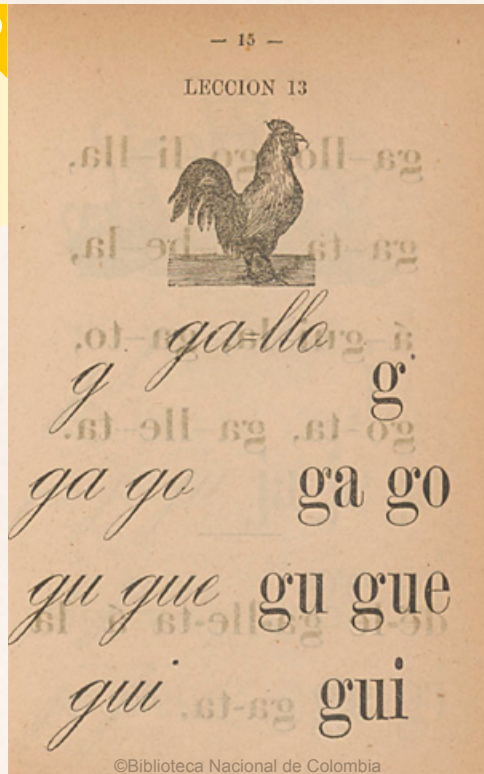 — 15 —
LECCION 13
ga-llo
g g
ga go ga go
gu gue gu gue
gui gui
©Biblioteca Nacional de Colombia